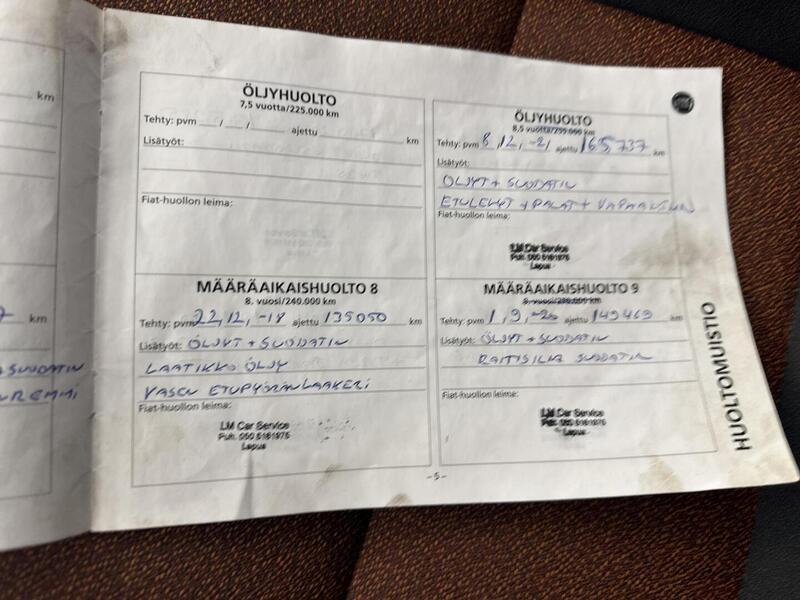 km
km
SUODATIN
ÖLJYHUOLTO
7,5 vuotta/225.000 km
Tehty: pvm / / ajettu km
Lisätyöt:
Fiat-huollon leima:
MÄÄRÄAIKAISHUOLTO 8
8. vuosi/240.000 km
Tehty: pvm 22,12, -18 ajettu 135050 km
Lisätyöt: ÖLJYT + SUODATIN
LAATIKKO ÖLJY
VASEN ETUPYÖRÄNLAAKERI
Fiat-huollon leima:
LM Car Service
Puh. 050 5161975
Lapua
ÖLJYHUOLTO
8,5 vuotta/255.000 km
Tehty: pvm 8,12, -21 ajettu 165,737 km
Lisätyöt:
ÖLJYT + SUODATIN
ETULEVYT + PALAT +
Fiat-huollon leima:
LM Car Service
Puh. 050 5161975
Lapua
MÄÄRÄAIKAISHUOLTO 9
Tehty: pvm 1,9,-20 ajettu 149469 km
Lisätyöt: ÖLJYT + SUODATIN
RAITISILMA SUODATIN
Fiat-huollon leima:
LM Car Service
Puh. 050 5161975
Lapua
- 5 -
HUOLTOMUISTIO